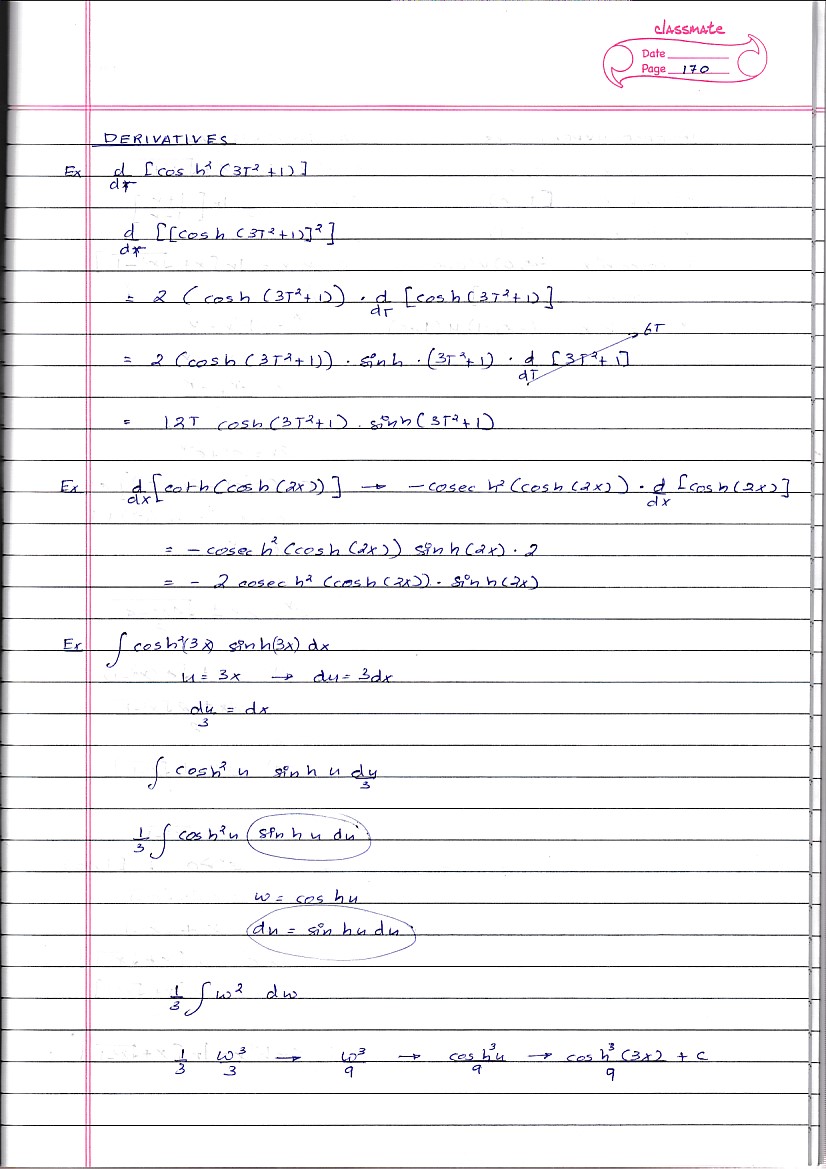 classmate
Date
Page 170
DERIVATIVES
Ex d/dT [cos h² (3T² + 1)]
d/dT [[cosh (3T²+1)]²]
= 2 (cosh (3T²+1)) · d/dT [cosh(3T²+1)]
6T
= 2 (cosh (3T²+1)) · sinh · (3T²+1) · d/dT [3T²+1]
= 12T cosh(3T²+1) · sinh(3T²+1)
Ex d/dx [coth(cosh(2x))] → -cosec h² (cosh(2x)) · d/dx [cosh(2x)]
= - cosec h² (cosh(2x)) sinh(2x) · 2
= - 2 cosec h² (cosh(2x)) · sinh(2x)
Ex ∫ cosh²(3x) sinh(3x) dx
u = 3x → du = 3dx
du/3 = dx
∫ cosh² u sinh u du/3
1/3 ∫ cosh² u sinh u du
w = cos hu
du = sin hu du
1/3 ∫ w² dw
1/3 w³/3 → w³/9 → cosh³u/9 → cosh³(3x)/9 + c